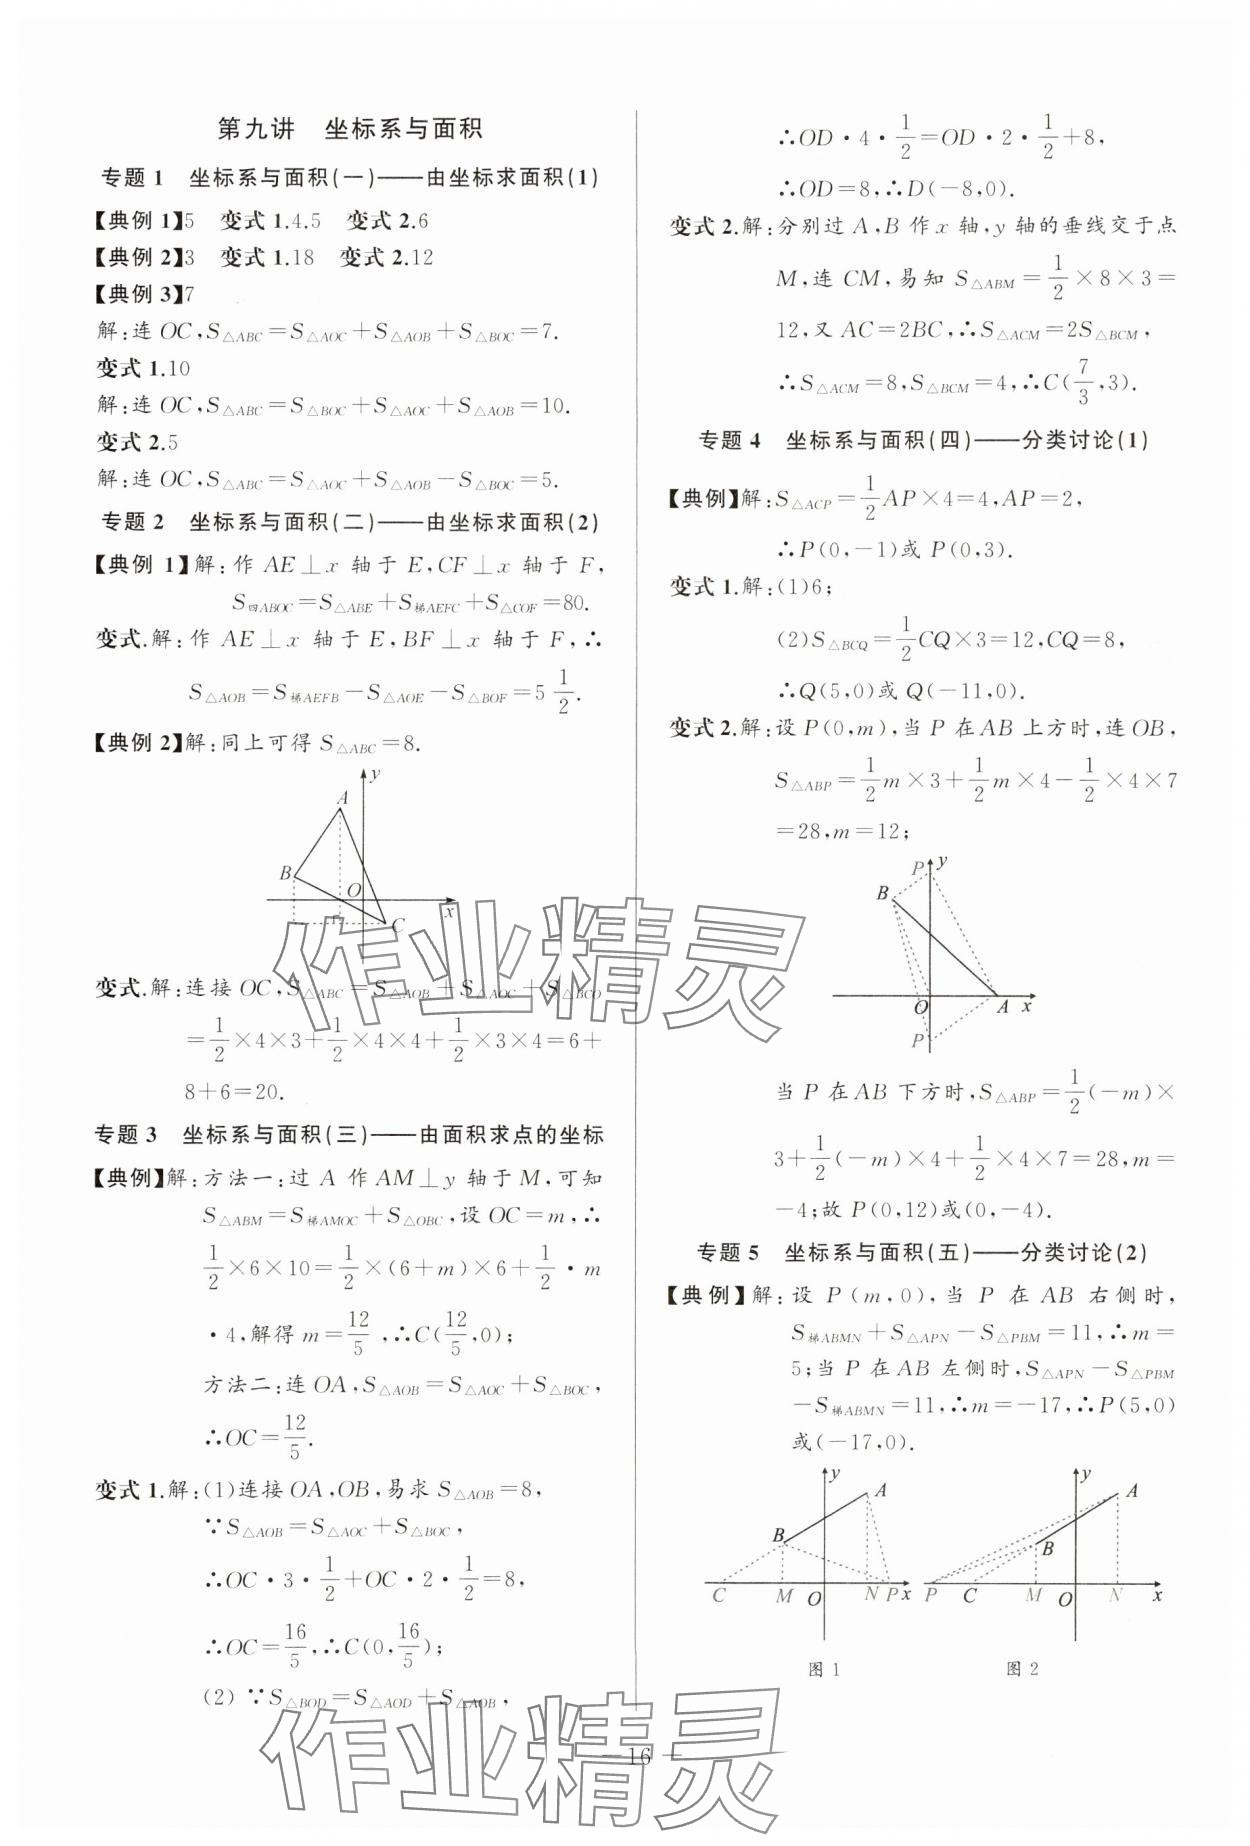 第九讲 坐标系与面积
专题 1 坐标系与面积(一)——由坐标求面积(1)
【典例 1】5 变式 1.4.5 变式 2.6
【典例 2】3 变式 1.18 变式 2.12
【典例 3】7
解:连 OC,S△ABC=S△AOC+S△AOB+S△BOC=7.
变式 1.10
解:连 OC,S△ABC=S△BOC+S△AOC+S△AOB=10.
变式 2.5
解:连 OC,S△ABC=S△AOC+S△AOB-S△BOC=5.
专题 2 坐标系与面积(二)——由坐标求面积(2)
【典例 1】解:作 AE⊥x 轴于 E,CF⊥x 轴于 F,
S四ABOC=S△ABE+S梯AEFC+S△COF=80.
变式.解:作 AE⊥x 轴于 E,BF⊥x 轴于 F,∴
S△AOB=S梯AEFB-S△AOE-S△BOF=5 1/2.
【典例 2】解:同上可得 S△ABC=8.
y
A
B
O
x
C
变式.解:连接 OC,S△ABC=S△AOB+S△AOC+S△BCO
=1/2×4×3+1/2×4×4+1/2×3×4=6+
8+6=20.
专题 3 坐标系与面积(三)——由面积求点的坐标
【典例】解:方法一:过 A 作 AM⊥y 轴于 M,可知
S△ABM=S梯AMOC+S△OBC,设 OC=m,∴
1/2×6×10=1/2×(6+m)×6+1/2·m
·4,解得 m=12/5,∴C(12/5,0);
方法二:连 OA,S△AOB=S△AOC+S△BOC,
∴OC=12/5.
变式 1.解:(1)连接 OA,OB,易求 S△AOB=8,
∵S△AOB=S△AOC+S△BOC,
∴OC·3·1/2+OC·2·1/2=8,
∴OC=16/5,∴C(0,16/5);
(2) ∵S△BOD=S△AOD+S△AOB,
∴OD·4·1/2=OD·2·1/2+8,
∴OD=8,∴D(-8,0).
变式 2.解:分别过 A,B 作 x 轴,y 轴的垂线交于点
M,连 CM,易知 S△ABM=1/2×8×3=
12,又 AC=2BC,∴S△ACM=2S△BCM,
∴S△ACM=8,S△BCM=4,∴C(7/3,3).
专题 4 坐标系与面积(四)——分类讨论(1)
【典例】解:S△ACP=1/2AP×4=4,AP=2,
∴P(0,-1)或 P(0,3).
变式 1.解:(1)6;
(2)S△BCQ=1/2CQ×3=12,CQ=8,
∴Q(5,0)或 Q(-11,0).
变式 2.解:设 P(0,m),当 P 在 AB 上方时,连 OB,
S△ABP=1/2m×3+1/2m×4-1/2×4×7
=28,m=12;
P y
B
O A x
P
当 P 在 AB 下方时,S△ABP=1/2(-m)×
3+1/2(-m)×4+1/2×4×7=28,m=
-4;故 P(0,12)或(0,-4).
专题 5 坐标系与面积(五)——分类讨论(2)
【典例】解:设 P(m,0),当 P 在 AB 右侧时,
S梯ABMN+S△APN-S△PBM=11,∴m=
5;当 P 在 AB 左侧时,S△APN-S△PBM
-S梯ABMN=11,∴m=-17,∴P(5,0)
或(-17,0).
y A
B
C M O N P x
图 1
y A
B
P C M O N x
图 2
作业精灵
作业精灵
—16—